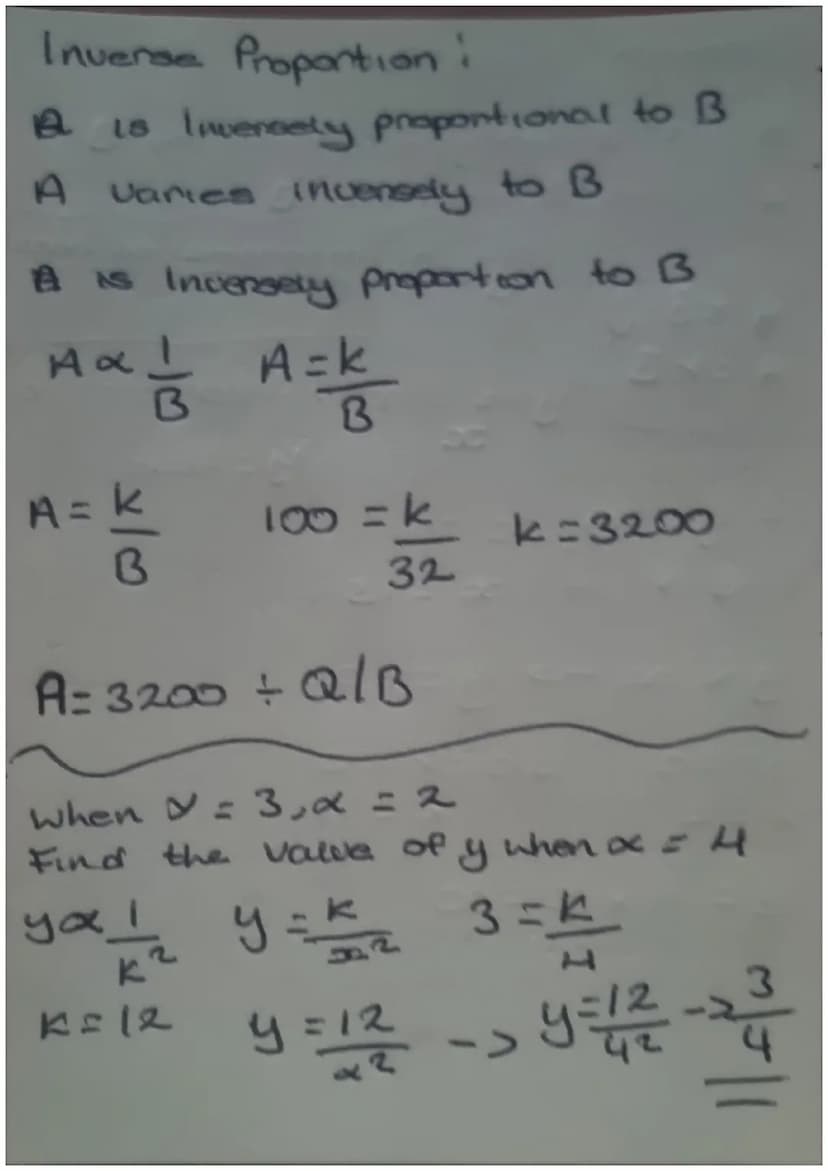 Inverse Proportion:
A is Inversely proportional to B
A varies inversely to B
A is Inversely proportion to B
A ∝ 1/B A = k/B
A = k/B 100 = k/32 k = 3200
A = 3200 ÷ Q/B
When y = 3, x = 2
Find the value of y when x = 4
y ∝ 1/k² y = k/x² 3 = k/4
k = 12 y = 12/x² -> y = 12/4² -> 3/4